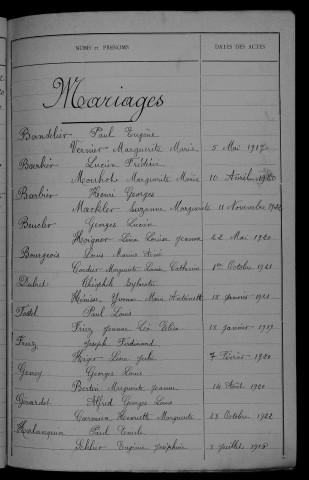 NOMS et PRÉNOMS DATES DES ACTES
Mariages
Bandelier Paul Eugène
Vernier Marguerite Marie 5 Mai 1917
Barbier Lucien Frédéric
Mourhot Marguerite Marie 10 Avril 1920
Barbier Henri Georges
Maekler Suzanne Marguerite 11 Novembre 1922
Beucler Georges Lucien
Hoigner Lina Louise Jeanne 22 Mai 1920
Bourgeois Louis Marius Aimé
Cordier Marguerite Louise Catherine 1er Octobre 1921
Dubret Sylvestre
Yvonne Marie Antoinette 15 Janvier 1921
Paul Louis
Jeanne Léa Elisa 18 Janvier 1919
Joseph Ferdinand
Lina Julie 7 Février 1920
Georges Louis
Bertin Marguerite Jeanne 14 Août 1920
Girardot Alfred Georges Louis
Henriette Marguerite 28 Octobre 1922
Paul Emile
Eugénie Joséphine Juillet 1918